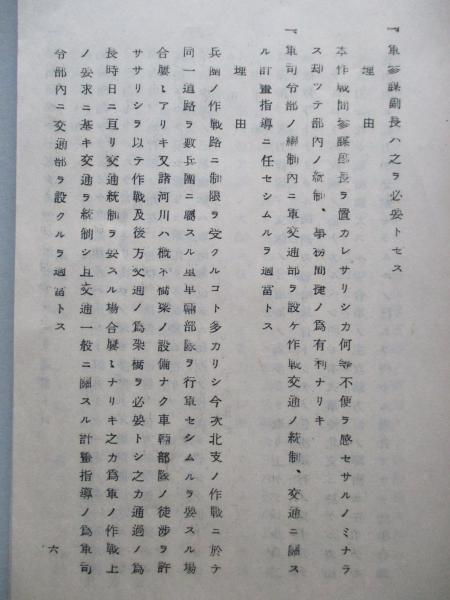 『軍參謀副長ハ之ヲ必要トセス
理由
本作戰間參謀副長ヲ置カレサリシカ何等不便ヲ感セサルノミナラ
ス却ツテ部內ノ統制、事務簡捷ノ爲有利ナリキ
『軍司令部ノ編制內ニ軍交通部ヲ設ケ作戰交通ノ統制、交通ニ關ス
ル計畫指導ニ任セシムルヲ適當トス
理由
兵團ノ作戰路ニ制限ヲ受クルコト多カリシ今次北支ノ作戰ニ於テ
同一道路ヲ數兵團ニ屬スル重車輛部隊ヲ行軍セシムルヲ要スル場
合屢〻アリキ又諸河川ハ概ネ橋梁ノ設備ナク車輛部隊ノ徒涉ヲ許
ササリシヲ以テ作戰及後方交通ノ爲架橋ヲ必要トシ之カ通過ノ爲
長時日ニ亘リ交通統制ヲ要スル場合屢〻ナリキ之カ爲軍ノ作戰上
ノ要求ニ基キ交通ヲ統制シ且交通一般ニ關スル計畫指導ノ爲軍司
令部內ニ交通部ヲ設クルヲ適當トス
六